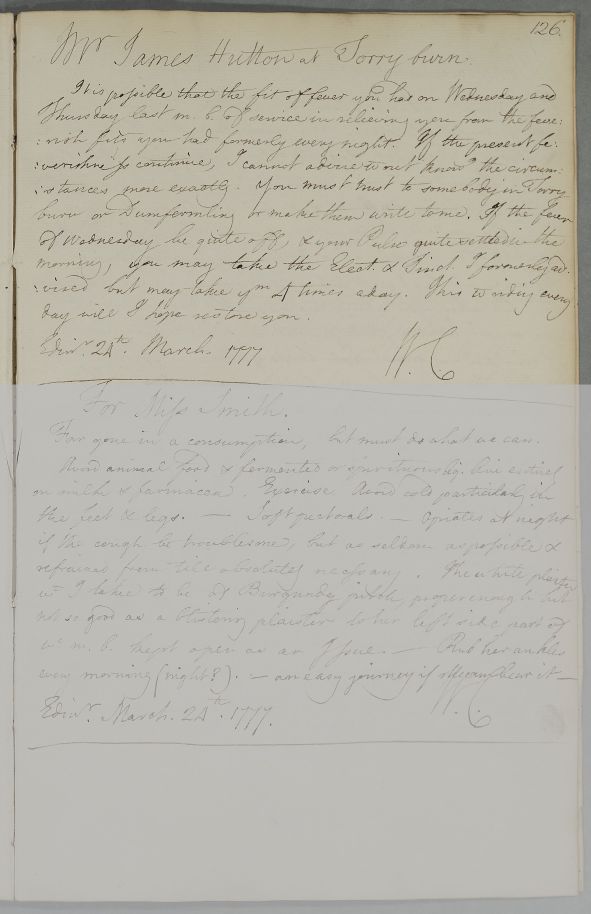 126.
Mr James Hutton at Torryburn.
It is possible that the fit of fever you had on Wednesday and
Thursday last m. b. of service in relieving you from the feve:
:rish fits you had formerly every night. If the present fe:
:verishness continue, I cannot advise wtout knowg the circum:
:stances more exactly. You must trust to somebody in Torry
burn or Dumfermling or make them write to me. If the fever
of Wednesday be quite off, & your Pulse quite settled in the
morning, you may take the Elect. & Tinct. I formerly ad:
:vised but may take ym 4 times a day. This wt riding every
day will I hope restore you.
Edinr. 24th. March 1777
W. C
For Miss Smith.
Far gone in a consumption, but must do what we can.
Avoid animal food & fermented or spirituous liq. live entirely
on milk & farinacea. Exercise Avoid cold particularly in
the feet & legs. — Soft pectorals. — Opiates at night
if the cough be troublesome, but as seldom as possible &
refrained from till absolutely necessary. The white plaister
wc I take to be of Burgundy pitch, proper enough but
not so good as a blistering plaister to her left side part of
wc m. b. kept open as an Issue. — Rub her ankles
every morning (night?). — an easy journey if she can bear it —
Edinr. March. 24th. 1777.
W. C